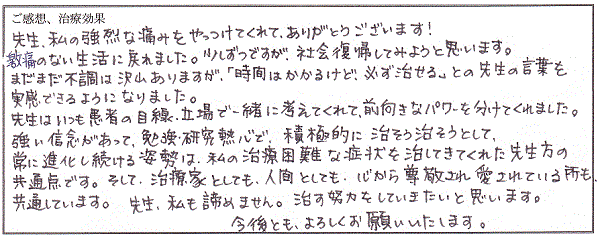 ご感想、治療効果
先生、私の強烈な痛みをやっつけてくれて、ありがとうございます!
激痛のない生活に戻れました。少しずつですが、社会復帰してみようと思います。
まだまだ不調は沢山ありますが、「時間はかかるけど、必ず治せる。」との先生の言葉も
実感できるようになりました。
先生はいつも患者の目線、立場で一緒に考えてくれて、前向きなパワーを分けてくれました。
強い信念があって、勉強・研究熱心で、積極的に治そう治そうとして、
常に進化し続ける姿勢は、私の治療困難な症状を治してきてくれた先生方の
共通点です。そして、治療家としても、人間としても、心から尊敬され愛されている所も、
共通しています。 先生、私も諦めません。治す努力をしていきたいと思います。
今後とも、よろしくお願いいたします。